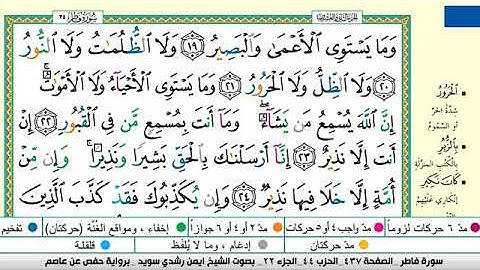 سورة فاطر
٢٤
وَمَا يَسْتَوِى الْأَعْمَىٰ وَالْبَصِيرُ ١٩ وَلَا الظُّلُمَاتُ وَلَا النُّورُ
٢٠ وَلَا الظِّلُّ وَلَا الْحَرُورُ ٢١ وَمَا يَسْتَوِى الْأَحْيَاءُ وَلَا الْأَمْوَاتُ
إِنَّ اللَّهَ يُسْمِعُ مَن يَشَاءُ وَمَا أَنتَ بِمُسْمِعٍ مَّن فِي الْقُبُورِ ٢٢ إِنْ
أَنتَ إِلَّا نَذِيرٌ ٢٣ إِنَّا أَرْسَلْنَاكَ بِالْحَقِّ بَشِيرًا وَنَذِيرًا وَإِن مِّنْ
أُمَّةٍ إِلَّا خَلَا فِيهَا نَذِيرٌ ٢٤ وَإِن يُكَذِّبُوكَ فَقَدْ كَذَّبَ الَّذِينَ
الْحَرُورُ
شِدَّةُ الحَرِّ
أو السَّمُومُ
بِالزُّبُرِ
بِالكُتُبِ المُنَزَّلَةِ
كَانَ نَكِيرِ
إنكاري عليهم
مدّ ٦ حركات لزوماً مدّ واجب ٤ أو ٥ حركات مدّ ٢ أو ٤ أو ٦ جوازاً إخفاء، ومواقع الغُنَّة (حركتان) تفخيم
مدّ حركتان إدغام، وما لا يُلفَظ قلقلة
سورة فاطر . الصفحة ٤٣٧ . الحزب ٤٤ . الجزء ٢٢ . بصوت الشيخ ايمن رشدي سويد . برواية حفص عن عاصم